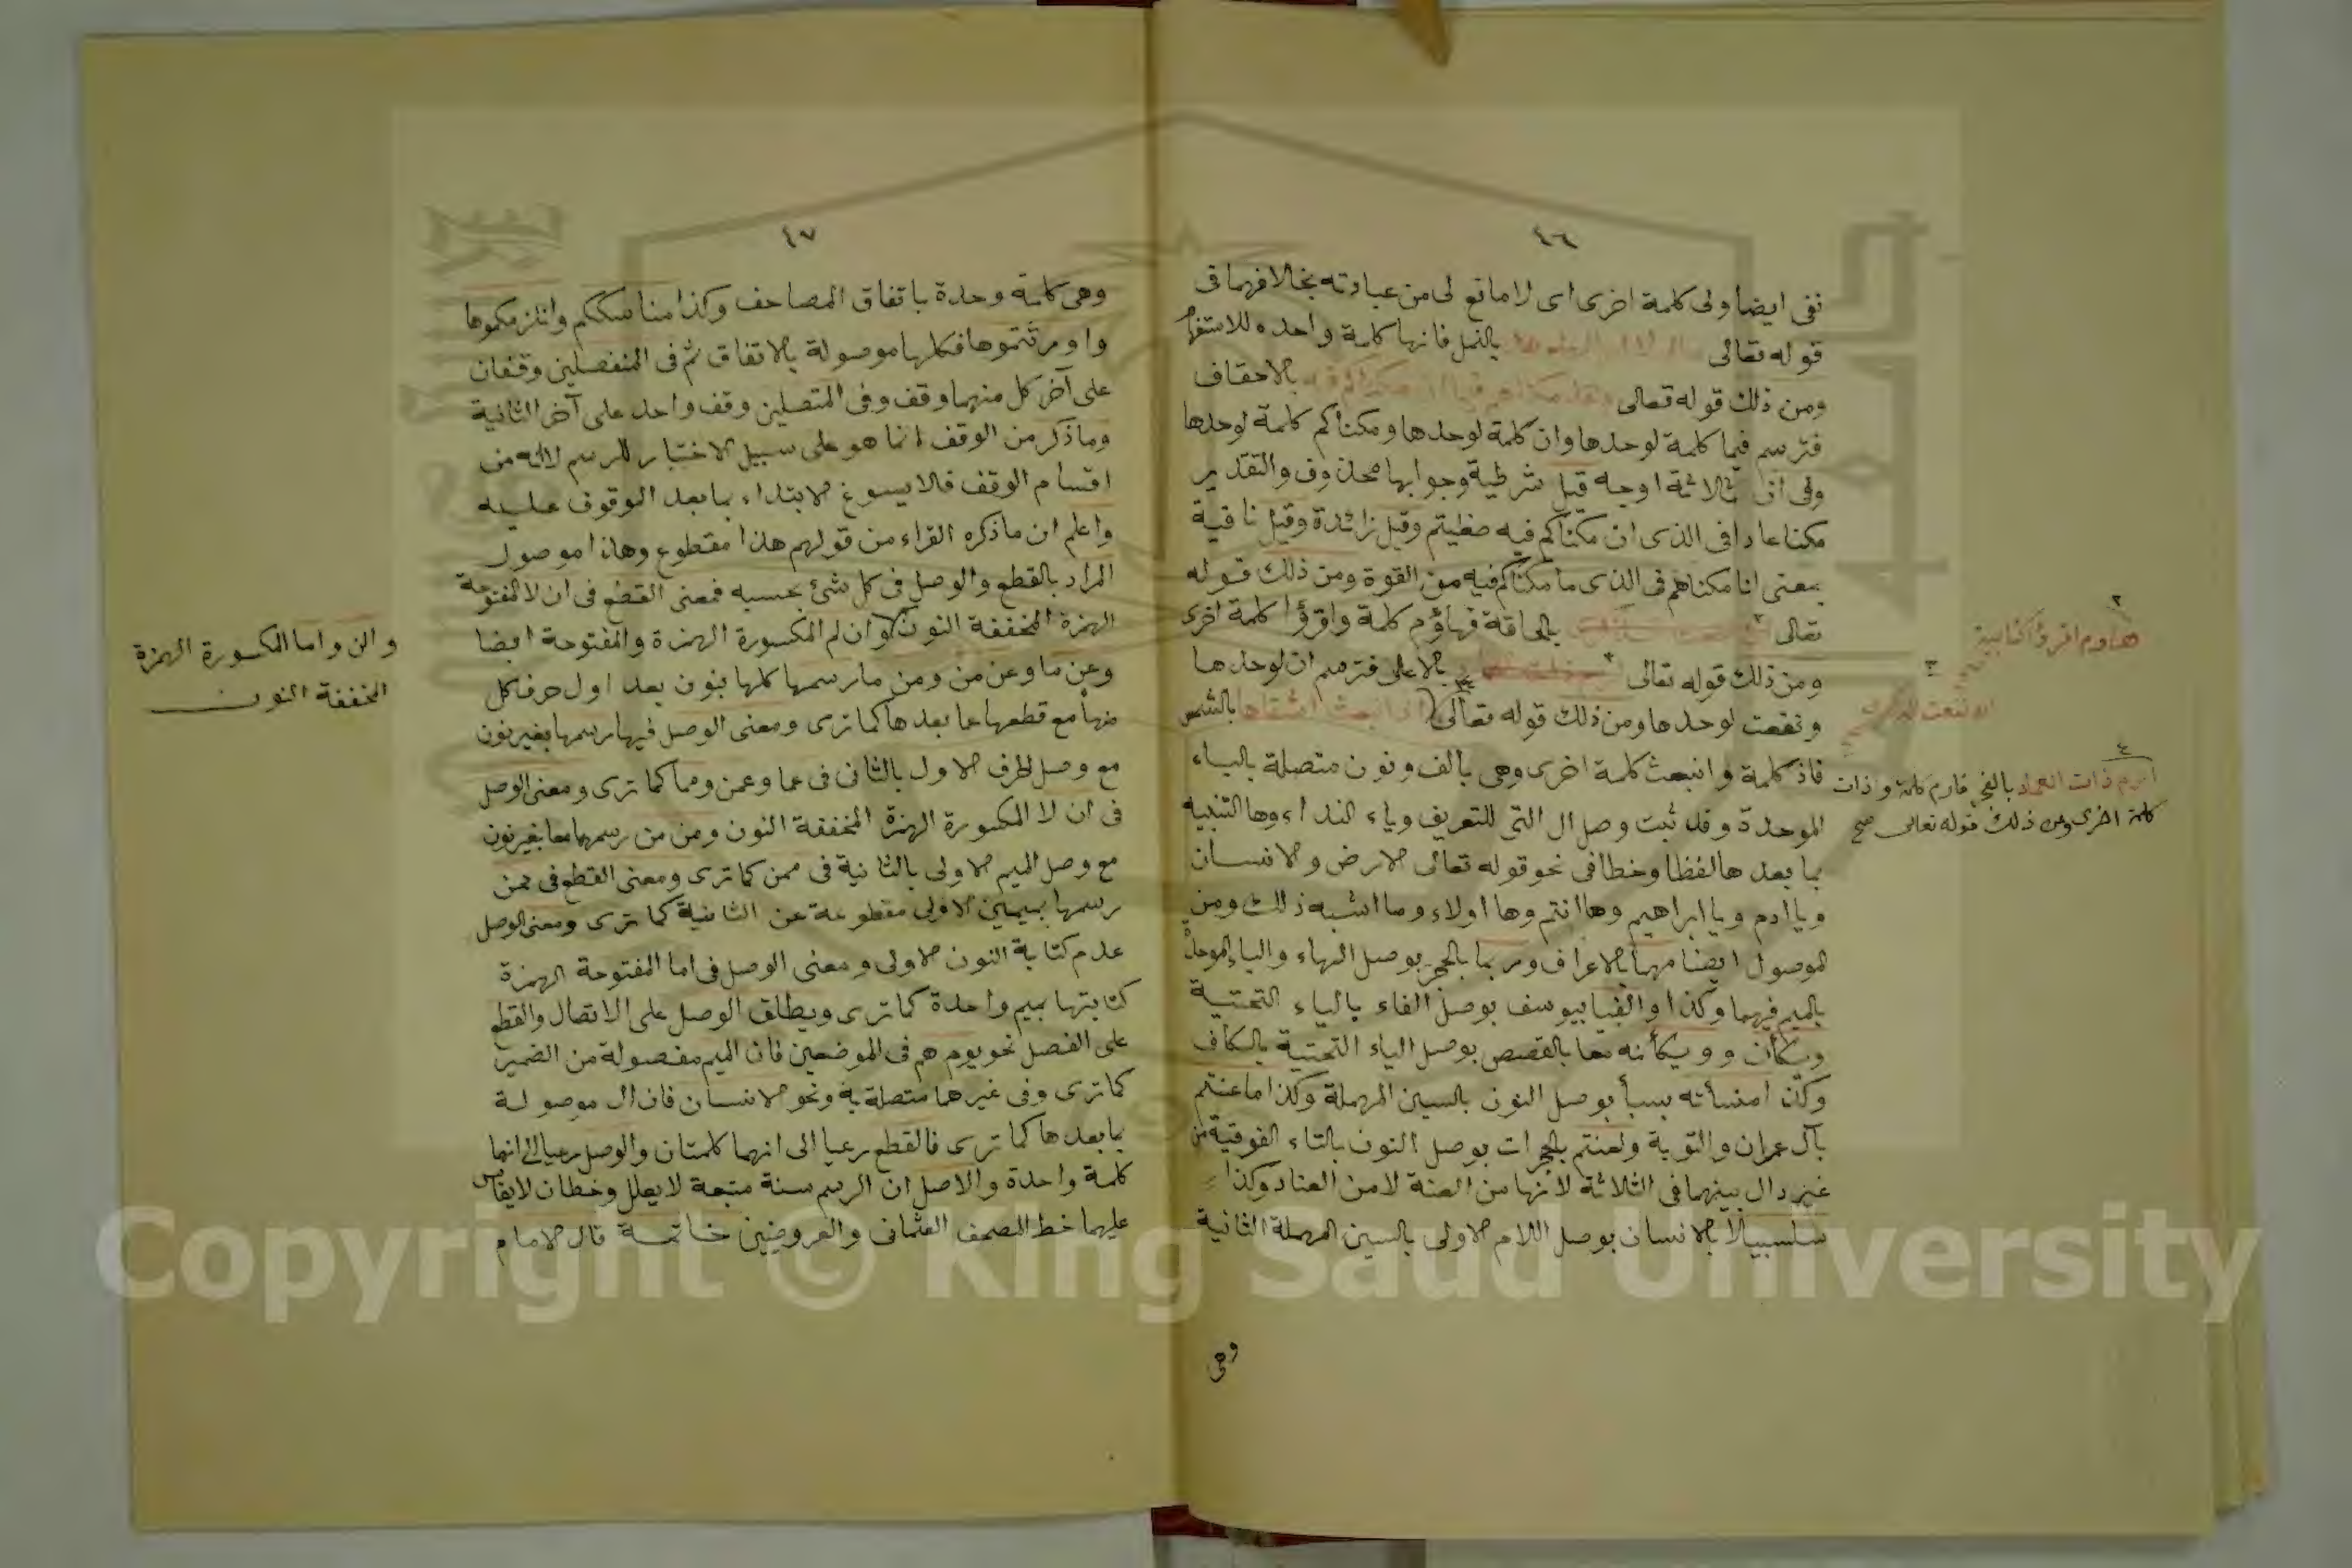 ٤٦
نفى ايضا ولى كلمة اخرى اى لا مانع لى من عبادته بخلافهما فى
قوله تعالى بالنمل فانها كلمة واحده للاستفهام
ومن ذلك قوله تعالى بالاحقاف
فترسم فيما كلمة لوحدها وان كلمة لوحدها ومكناكم كلمة لوحدها
وفى ان ثلاثة اوجه قيل شرطية وجوابها محذوف والتقدير
مكنا عادا فى الذى ان مكناكم فيه طغيتم وقيل زائدة وقيل نافية
بمعنى انا مكناهم فى الذى ما مكناكم فيه من القوة ومن ذلك قوله
تعالى ٢ بالحاقة فهاؤم كلمة واقرؤا كلمة اخرى
ومن ذلك قوله تعالى ٣ بالاعلى فترسم ان لوحدها
ونفعت لوحدها ومن ذلك قوله تعالى اذ انبعث اشقاها بالشمس
فاذ كلمة وانبعث كلمة اخرى وهى بالف ونون متصلة بالباء
الموحدة وقد ثبت وصل ال التى للتعريف وياء النداء وها التنبيه
بما بعدها لفظا وخطا فى نحو قوله تعالى الارض والانسان
ويا ادم ويا ابراهيم وها انتم وها اولاء وما اشبه ذلك ومن
الموصول ايضا مهما بالاعراف وربما بالحجر بوصل الهاء والباء الموحدة
بالميم فيهما وكذا والفيا بيوسف بوصل الفاء بالياء التحتية
ويكأن وويكأنه معا بالقصص بوصل الياء التحتية بالكاف
وكذا منسأته بسبأ بوصل النون بالسين المهملة وكذا ما عنتم
بآل عمران والتوبة ولعنتم بالحجرات بوصل النون بالتاء الفوقية من
غير دال بينهما فى الثلاثة لانها من العنة لا من العناد وكذا
سلسبيلا بالانسان بوصل اللام الاولى بالسين المهملة الثانية
وهى
٢
هاؤم اقرؤا كتابيه
٣
ان نفعت الذكرى
٤
ارم ذات العماد بالفجر فارم كلمة وذات
كلمة اخرى ومن ذلك قوله تعالى صح
٤٧
وهى كلمة وحدة باتفاق المصاحف وكذا مناسككم وانلزمكموها
واورثتموها فكلها موصولة بالاتفاق ثم فى المنفصلين وقفان
على آخر كل منهما وقف وفى المتصلين وقف واحد على آخر الثانية
وما ذكر من الوقف انما هو على سبيل الاختبار للرسم لا انه من
اقسام الوقف فلا يسوغ الابتداء بما بعد الوقوف عليه
واعلم ان ما ذكره القراء من قولهم هذا مقطوع وهذا موصول
المراد بالقطع والوصل فى كل شئ بحسبه فمعنى القطع فى ان لا المفتوحة
الهمزة المخففة النون وان لم المكسورة الهمزة والمفتوحة ايضا
وعن ما وعن من ومن ما رسمها كلها بنون بعد اول حرف كل
منها مع قطعها عما بعدها كما ترى ومعنى الوصل فيها رسمها بغير نون
مع وصل الحرف الاول بالثانى فى عما وعمن ومما كما ترى ومعنى الوصل
فى ان لا المكسورة الهمزة المخففة النون ومن من رسمهما معا بغير نون
مع وصل الميم الاولى بالثانية فى ممن كما ترى ومعنى القطع فى ممن
رسمها بميمين الاولى مقطوعة عن الثانية كما ترى ومعنى الوصل
عدم كتابة النون الاولى ومعنى الوصل فى اما المفتوحة الهمزة
كتابتها بميم واحدة كما ترى ويطلق الوصل على الاتصال والقطع
على الفصل نحو يوم هم فى الموضعين فان الميم مفصولة من الضمير
كما ترى وفى غيرهما متصلة به ونحو الانسان فان ال موصولة
بما بعدها كما ترى فالقطع رعيا الى انهما كلمتان والوصل رعيا الى انهما
كلمة واحدة والاصل ان الرسم سنة متبعة لا يعلل وخطان لا يقاس
عليهما خط المصحف العثمانى والعروضيين خاتمة قال الامام
والن واما المكسورة الهمزة
المخففة النون
Copyright © King Saud University